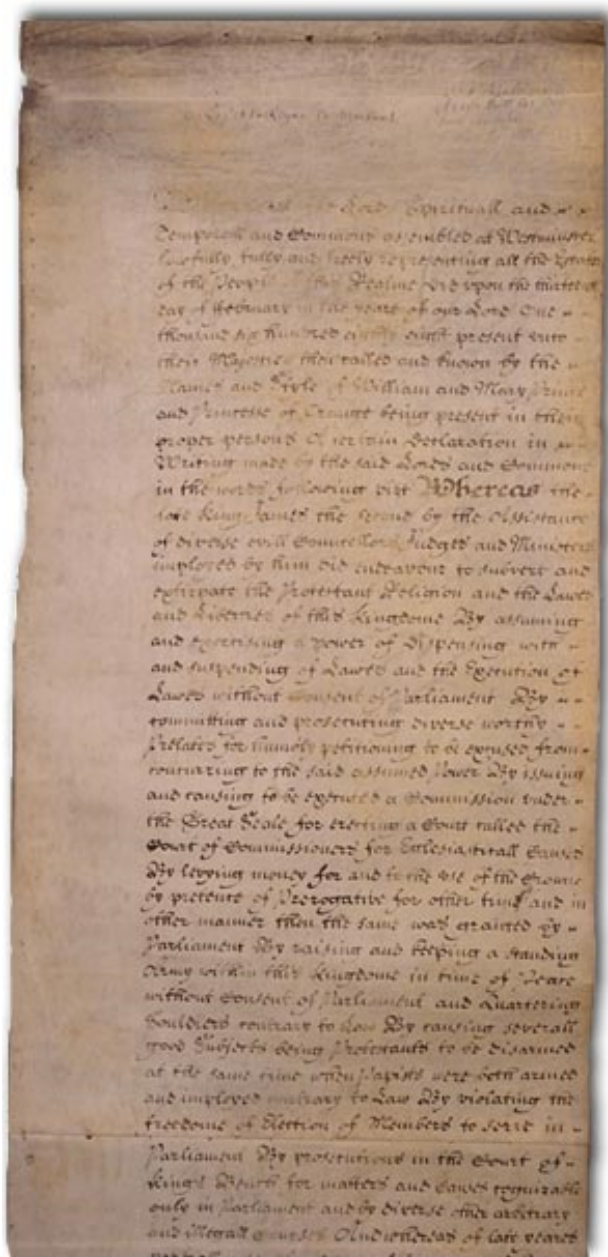 the Lords Spirituall and
Temporall and Commons assembled at Westminster
lawfully fully and freely representing all the Estates
of the People of this Realme did upon the thirteenth
day of February in the yeare of our Lord One
thousand six hundred eighty eight present unto
their Majesties then called and known by the
Names and Stile of William and Mary Prince
and Princesse of Orange being present in their
proper persons A certain Declaration in
Writing made by the said Lords and Commons
in the words following vizt Whereas the
late King James the second by the Assistance
of diverse evill Councellors Judges and Ministers
imployed by him did endeavour to subvert and
extirpate the Protestant Religion and the Lawes
and Liberties of this Kingdome By assuming
and exercising a power of Dispensing with
and suspending of Lawes and the Execution of
Lawes without Consent of Parliament By
committing and prosecuting diverse worthy
Prelates for humbly petitioning to be excused from
concurring to the said assumed Power By issuing
and causing to be executed a Commission under
the Great Seale for erecting a Court called the
Court of Commissioners for Ecclesiasticall Causes
By levying money for and to the use of the Crowne
by pretence of Prerogative for other time and in
other manner then the same was granted by
Parliament By raising and keeping a standing
Army within this Kingdome in time of Peace
without Consent of Parliament and Quartering
Souldiers contrary to Law By causing severall
good Subjects being Protestants to be disarmed
at the same time when Papists were both armed
and imployed contrary to Law By violating the
freedome of Election of Members to serve in
Parliament By prosecutions in the Court of
Kings Bench for matters and Causes cognizable
only in Parliament and by diverse other arbitrary
and Illegall courses And whereas of late yeares